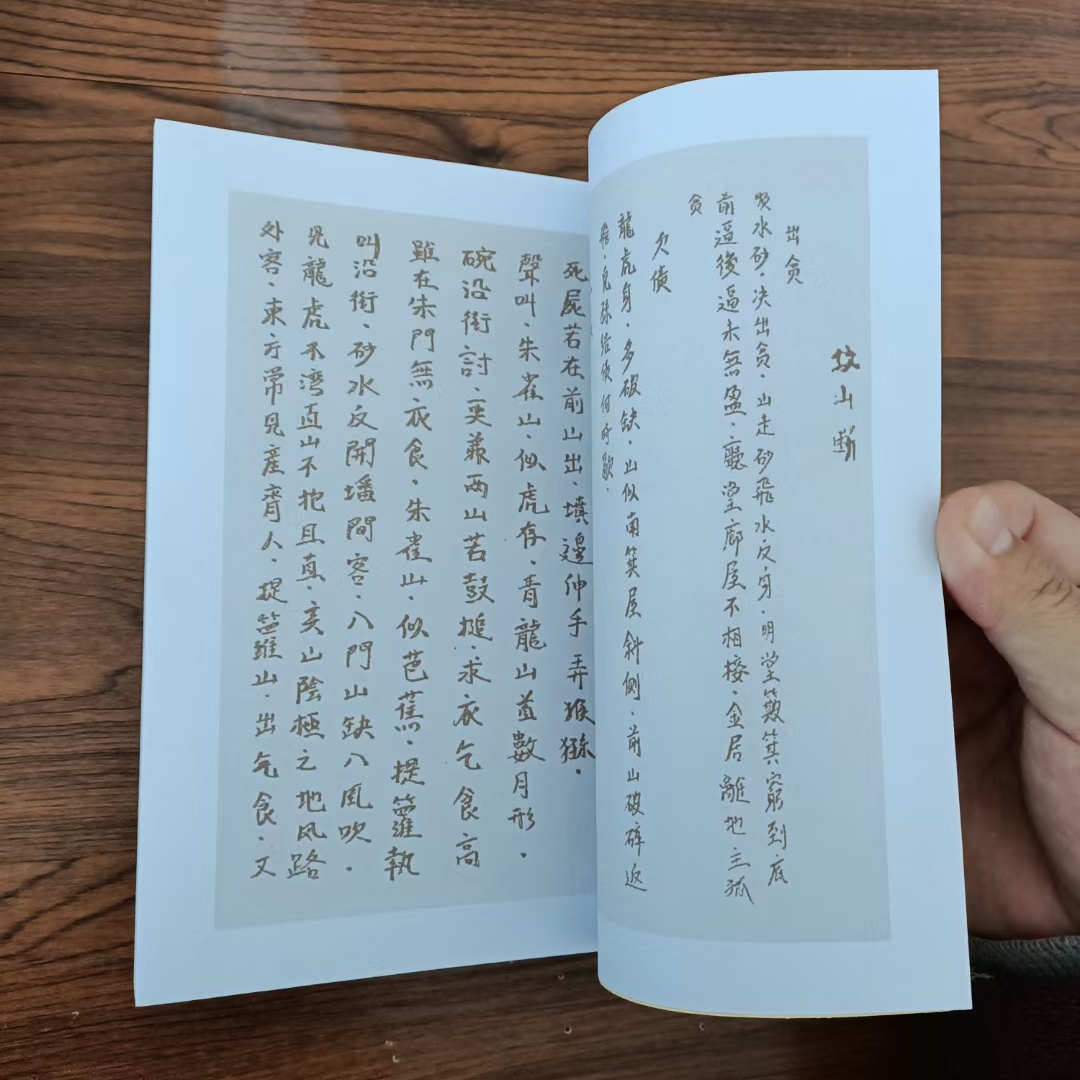 坟山断
出贪
水砂、决出贪、山走砂飛水反身、明堂簸箕窮到底
前逼後逼未無盈、廳堂廊屋不相接、金居離地主孤
贪
欠債
龍虎身、多破缺、山似南箕屋斜側、前山破碎返
債何時歇、
死屍若在前山出、墳邊伸手弄猴猻、
聲叫、朱雀山、似虎存、青龍山並數月形、
碗沿街討、更兼两山若鼓搥、求衣乞食高
雖在朱門無衣食、朱雀山、似芭蕉、提籮執
叫沿街、砂水反開墦間客、八門山缺八風吹、
見龍虎不湾直、山不抱且真、亥山陰極之地風路
外客、東方常見産齊人、提籮山、出乞食、又